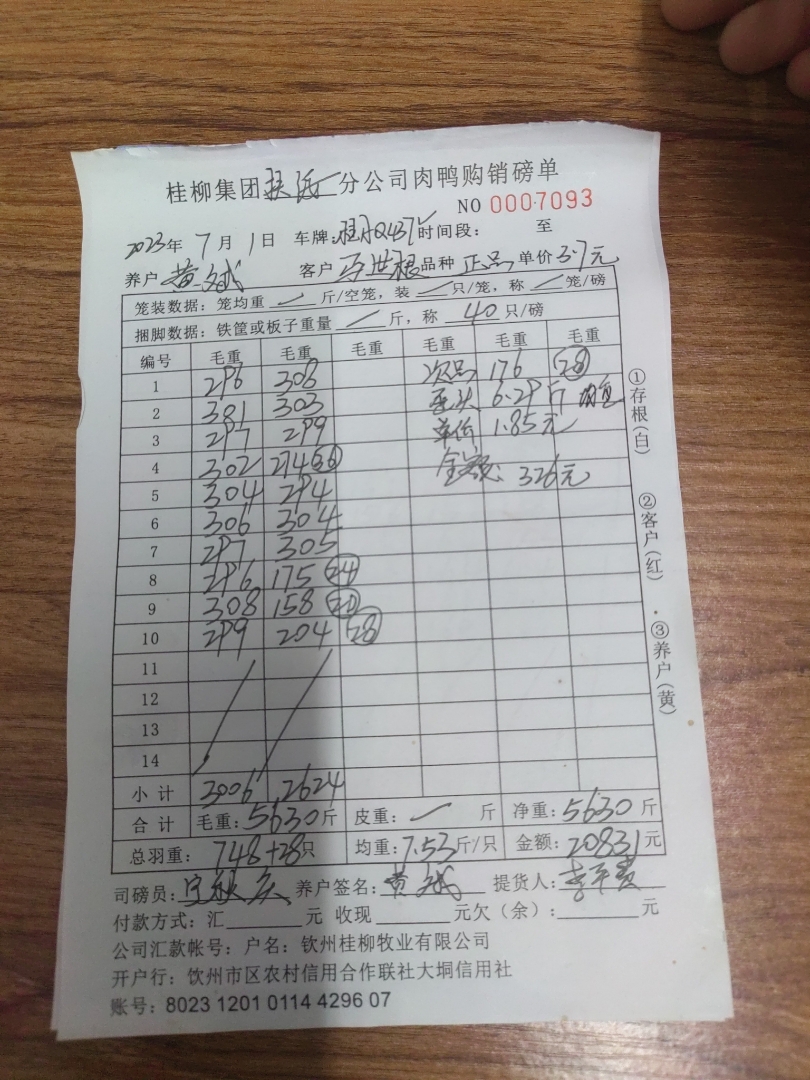 桂柳集团分公司肉鸭购销磅单
NO 0007093
2023年 7月 1日 车牌: 时间段: 至
养户 黄 客户 世根 品种 正品 单价 3.7元
笼装数据:笼均重 ✓ 斤/空笼,装 ✓ 只/笼,称 ✓ 笼/磅
捆脚数据:铁筐或板子重量 ✓ 斤,称 40 只/磅
编号 毛重 毛重 毛重 毛重 毛重 毛重
1 296 308 次品 176 28
2 301 303 6.29斤
3 297 299 单价 1.85元
4 302 274 36 金额: 326元
5 304 294
6 306 304
7 297 305
8 296 175 24
9 308 158 20
10 299 204 28
11
12
13
14
小计 3006 2624
合计 毛重:5630斤 皮重: ✓ 斤 净重:5630斤
总羽重: 748+28只 均重:7.53斤/只 金额:20831元
司磅员: 养户签名:黄 提货人:李
付款方式:汇______元 收现______元欠(余):______元
公司汇款帐号:户名:钦州桂柳牧业有限公司
开户行:饮州市区农村信用合作联社大垌信用社
账号:8023 1201 0114 4296 07
①存根(白)
②客户(红)
③养户(黄)